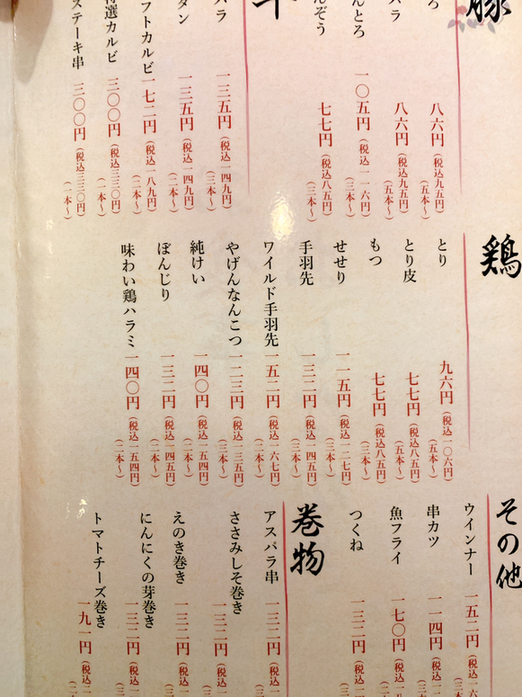 豚
ろ 八六円(税込九五円)(五本〜)
バラ 八六円(税込九五円)(五本〜)
んとろ 一〇五円(税込一一六円)(三本〜)
んぞう 七七円(税込八五円)(三本〜)
バラ 一三五円(税込一四九円)(二本〜)
タン 一三五円(税込一四九円)(二本〜)
フトカルビ 一七二円(税込一八九円)(二本〜)
特選カルビ 三〇〇円(税込三三〇円)(一本〜)
ステーキ串 三〇〇円(税込三三〇円)(一本〜)
鶏
とり 九六円(税込一〇六円)(五本〜)
とり皮 七七円(税込八五円)(五本〜)
もつ 七七円(税込八五円)(三本〜)
せせり 一一五円(税込一二七円)(三本〜)
手羽先 一三二円(税込一四五円)(二本〜)
ワイルド手羽先 一五二円(税込一六七円)(二本〜)
やげんなんこつ 一二三円(税込一三五円)(三本〜)
純けい 一四〇円(税込一五四円)(二本〜)
ぼんじり 一三二円(税込一四五円)(二本〜)
味わい鶏ハラミ 一四〇円(税込一五四円)(二本〜)
その他
ウインナー 一五二円(税込一六
串カツ 一一四円(税込
魚フライ 一七〇円(税込
つくね 一三二円(税込
巻物
アスパラ串 一三二円(税込
ささみしそ巻き 一三二円(税込
えのき巻き 一三二円(税込
にんにくの芽巻き 一三二円(税込
トマトチーズ巻き 一九一円(税込